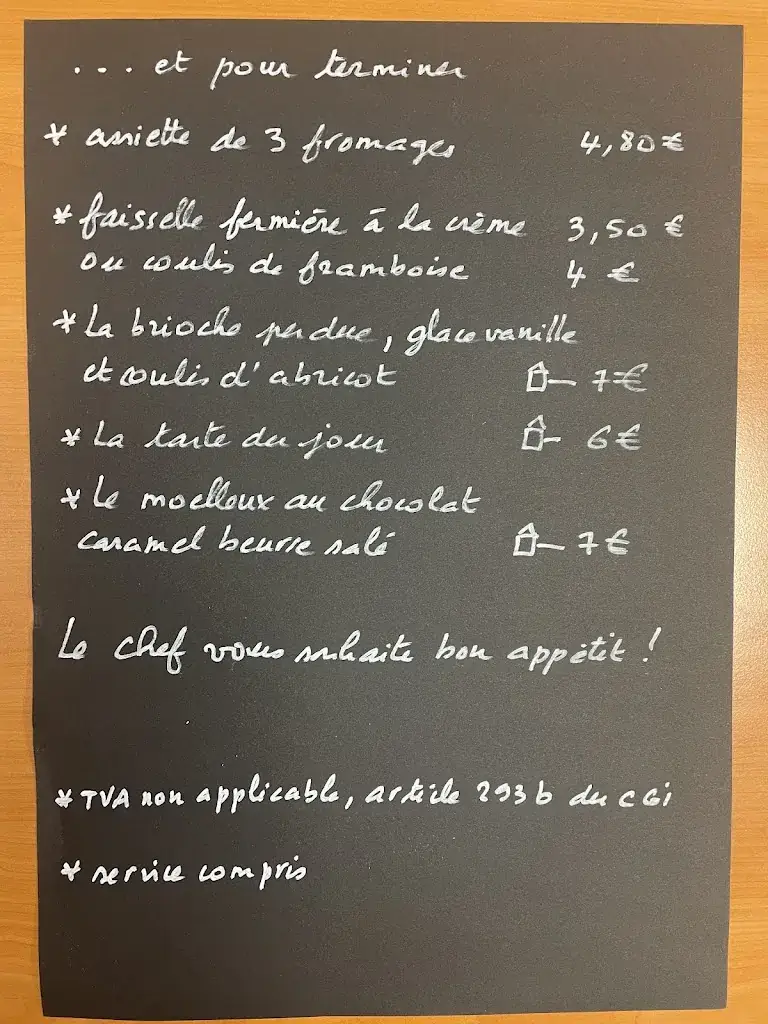 ... et pour terminer
* assiette de 3 fromages 4,80 €
* faisselle fermière à la crème 3,50 €
ou coulis de framboise 4 €
* La brioche perdue, glace vanille
et coulis d'abricot 7 €
* La tarte du jour 6 €
* Le moelleux au chocolat
caramel beurre salé 7 €
Le chef vous souhaite bon appétit !
* TVA non applicable, article 293 b du CGi
* service compris